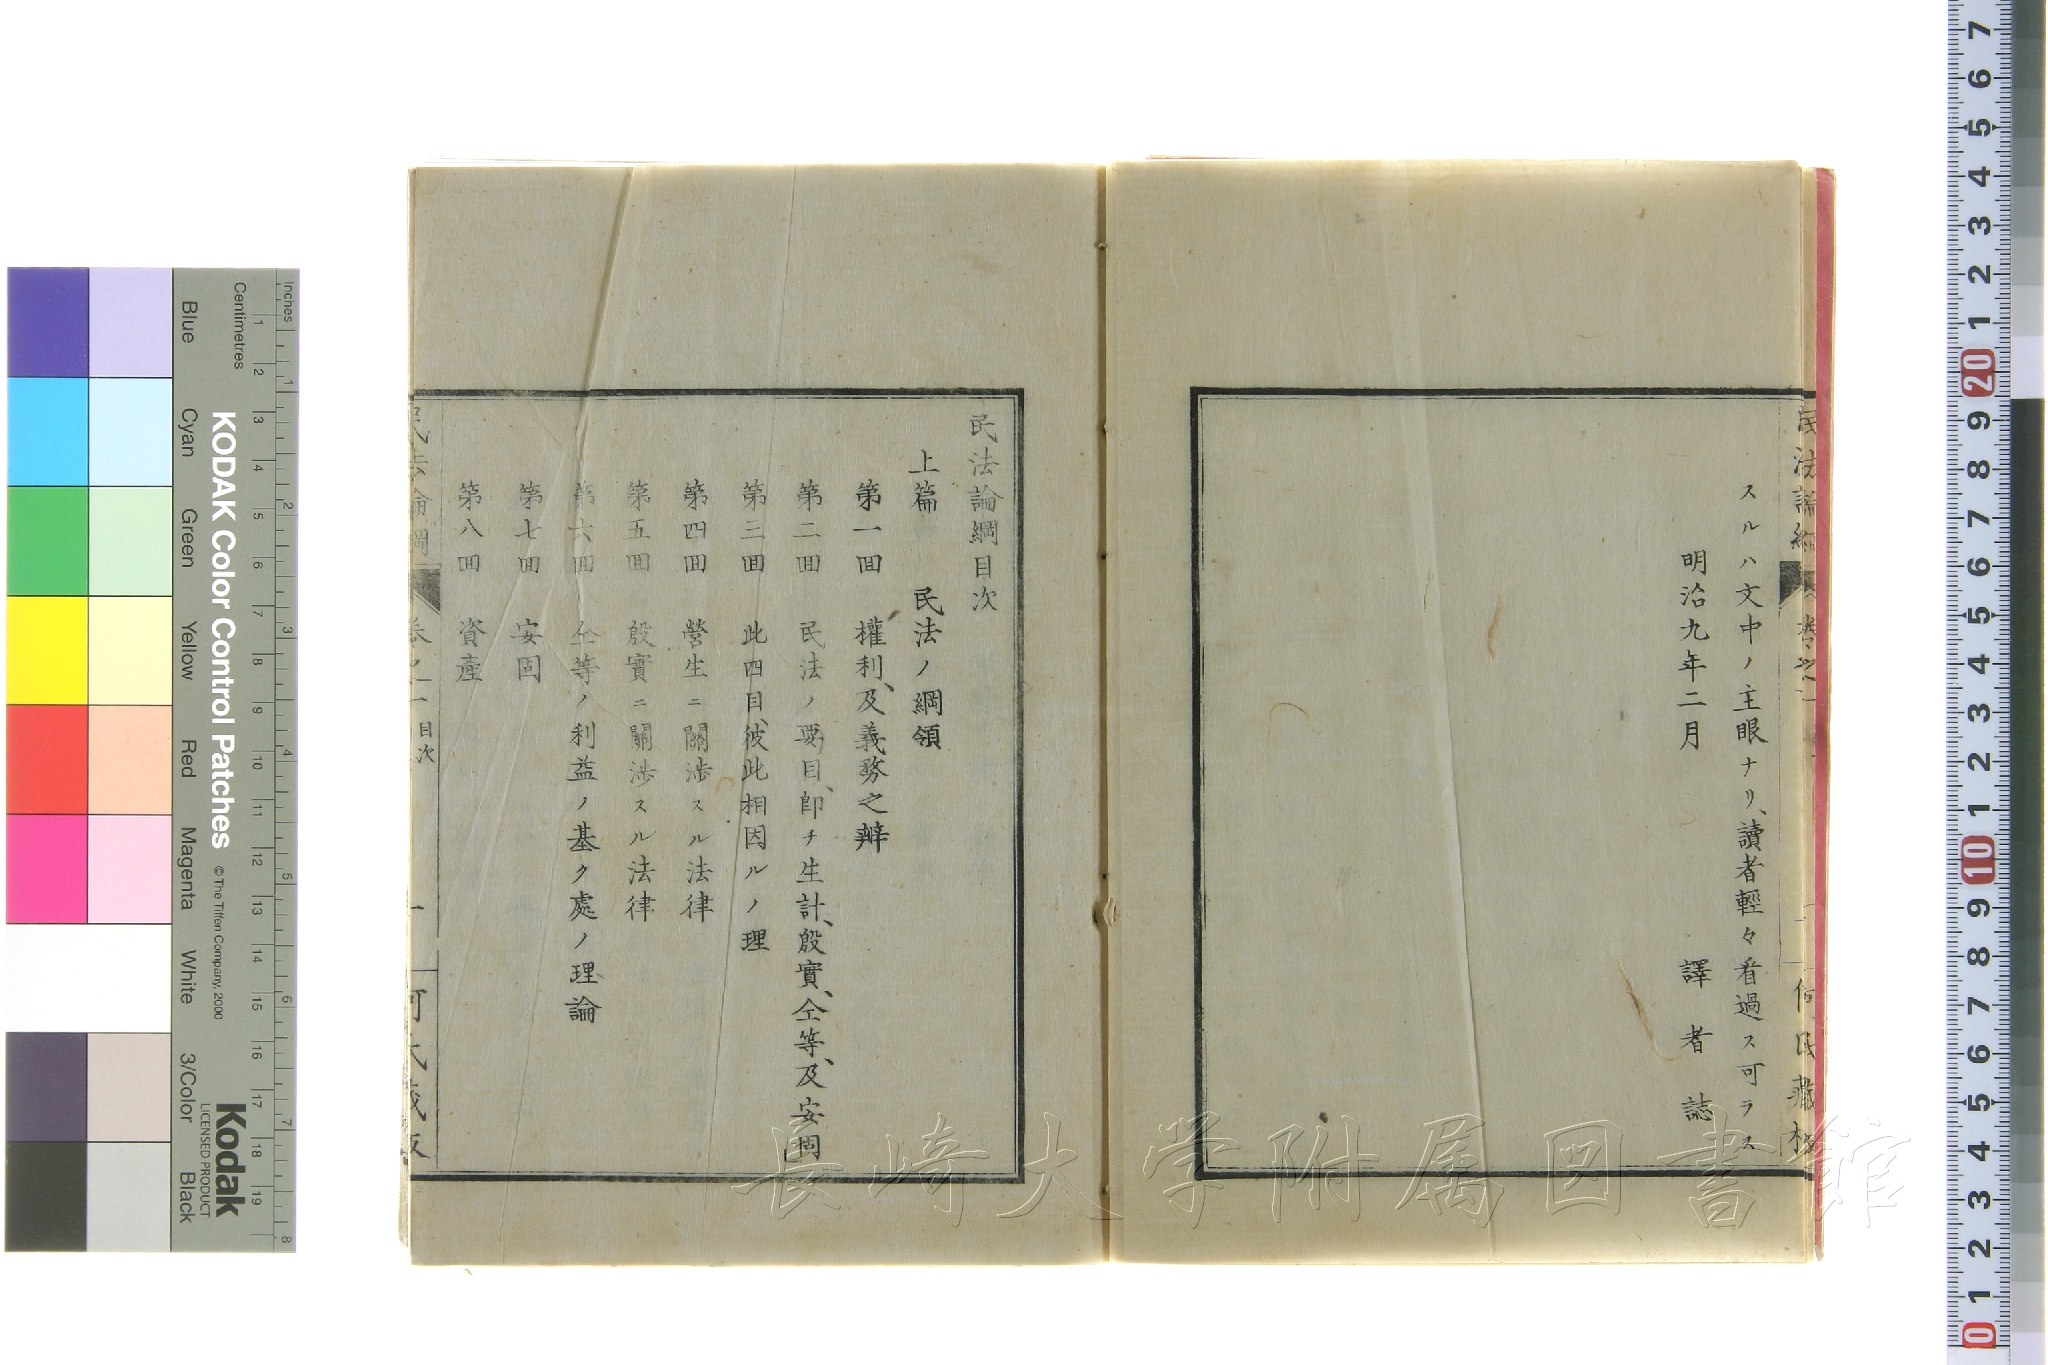 スルハ文中ノ主眼ナリ、讀者輕々看過ス可ラス
明治九年二月　譯者誌
民法論綱目次
上篇　民法ノ綱領
第一囬　權利、及義務之辨
第二囬　民法ノ要目、卽チ生計、殷實、仝等、及安固
第三囬　此四目、彼此相因ルノ理
第四囬　營生ニ關渉スル法律
第五囬　殷實ニ關渉スル法律
第六囬　仝等ノ利益ノ基ク處ノ理論
第七囬　安固
第八囬　資產
民法論綱　卷之一　目次　一　何氏藏版
長崎大学附属図書館
Inches
Centimetres
KODAK Color Control Patches
© The Tiffen Company, 2000
Blue
Cyan
Green
Yellow
Red
Magenta
White
3/Color
Black
Kodak
LICENSED PRODUCT